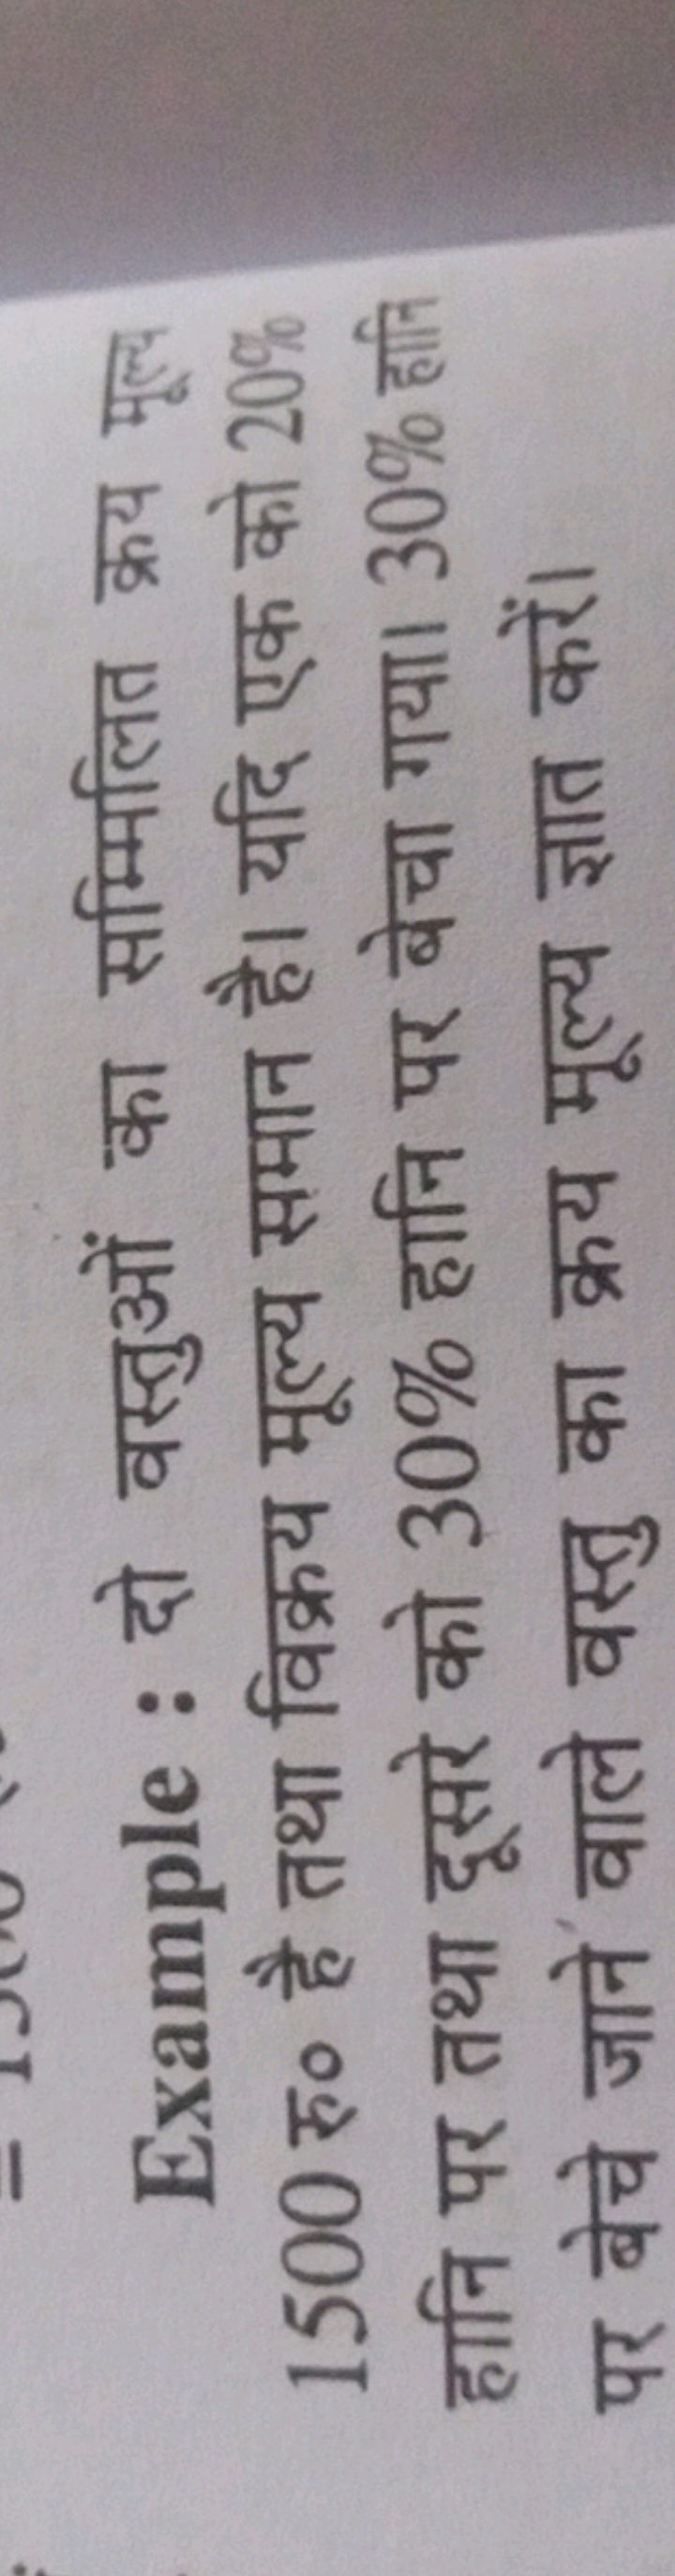 Example : दो वस्तुओं का सम्मिलित क्रय मूल्य
1500 रु० है तथा विक्रय मूल्य समान है। यदि एक को 20%
हानि पर तथा दूसरे को 30% हानि पर बेचा गया। 30% हानि
पर बेचे जाने वाले वस्तु का क्रय मूल्य ज्ञात करें।